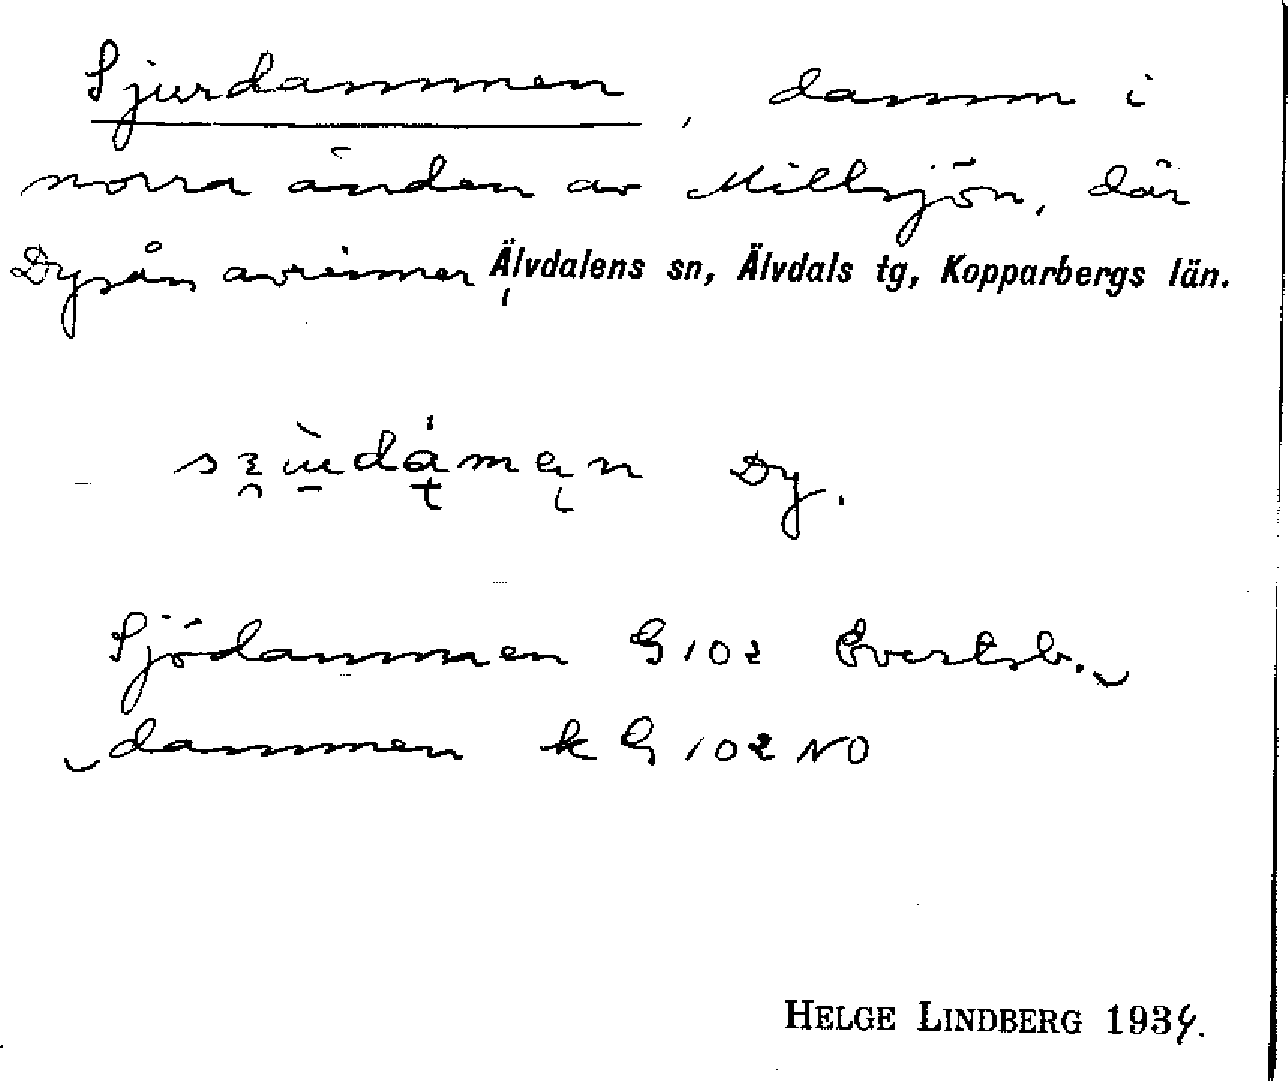 Sjurdammen, damm i
norra änden av Millsjön, där
Dysån avrinner, Älvdalens sn, Älvdals tg, Kopparbergs län.
Dy.
Sjödammen G 102 Evertsb.
dammen k G 102 NO
HELGE LINDBERG 1934.